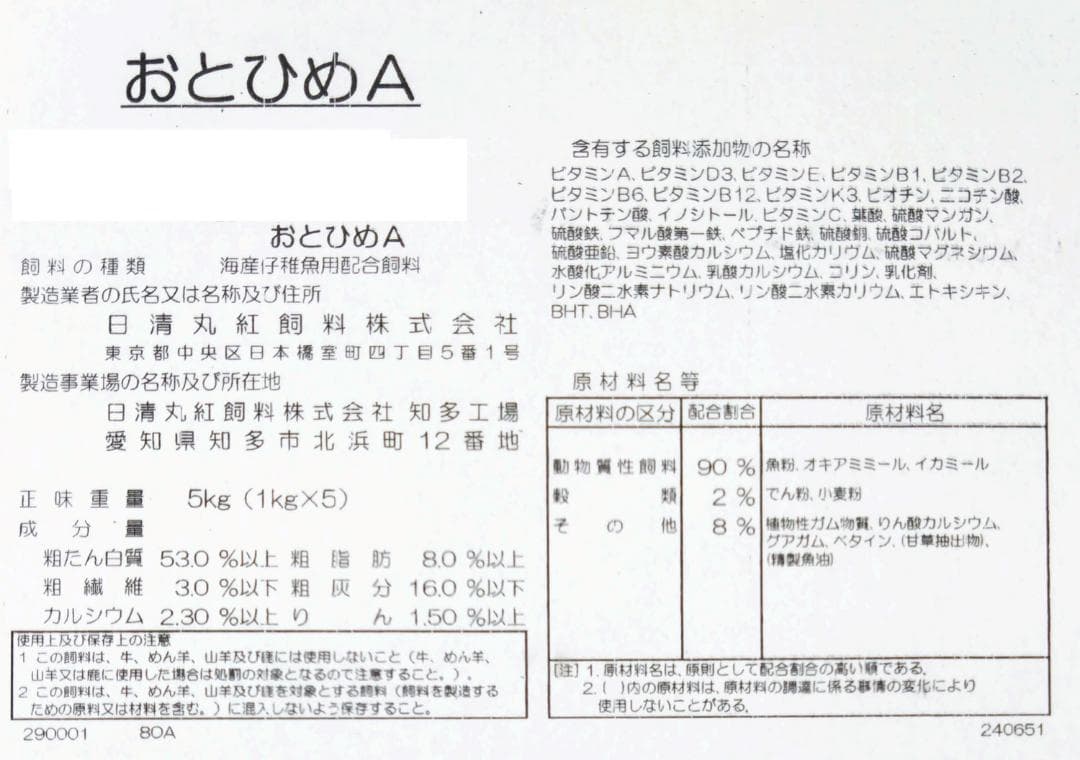 おとひめA
おとひめA
飼料の種類 海産仔稚魚用配合飼料
製造業者の氏名又は名称及び住所
日清丸紅飼料株式会社
東京都中央区日本橋室町四丁目5番1号
製造事業場の名称及び所在地
日清丸紅飼料株式会社 知多工場
愛知県知多市北浜町12番地
正味重量 5kg (1kg×5)
成分量
粗たん白質 53.0 %以上 粗脂肪 8.0 %以上
粗繊維 3.0 %以下 粗灰分 16.0 %以下
カルシウム 2.30 %以上 りん 1.50 %以上
使用上及び保存上の注意
1 この飼料は、牛、めん羊、山羊及び鹿には使用しないこと(牛、めん羊、
山羊又は鹿に使用した場合は処罰の対象となるので注意すること。)。
2 この飼料は、牛、めん羊、山羊及び鹿を対象とする飼料(飼料を製造する
ための原料又は材料を含む。)に混入しないよう保存すること。
290001 80A
含有する飼料添加物の名称
ビタミンA、ビタミンD3、ビタミンE、ビタミンB1、ビタミンB2、
ビタミンB6、ビタミンB12、ビタミンK3、ビオチン、ニコチン酸、
パントテン酸、イノシトール、ビタミンC、葉酸、硫酸マンガン、
硫酸鉄、フマル酸第一鉄、ペプチド鉄、硫酸銅、硫酸コバルト、
硫酸亜鉛、ヨウ素酸カルシウム、塩化カリウム、硫酸マグネシウム、
水酸化アルミニウム、乳酸カルシウム、コリン、乳化剤、
リン酸二水素ナトリウム、リン酸二水素カリウム、エトキシキン、
BHT、BHA
原材料名等
原材料の区分 配合割合 原材料名
動物質性飼料 90 % 魚粉、オキアミミール、イカミール
穀類 2 % でん粉、小麦粉
その他 8 % 植物性ガム物質、りん酸カルシウム、
グアガム、ベタイン、(甘草抽出物)、
(精製魚油)
[注] 1. 原材料名は、原則として配合割合の高い順である。
2. ( )内の原材料は、原材料の調達に係る事情の変化により
使用しないことがある。
240651